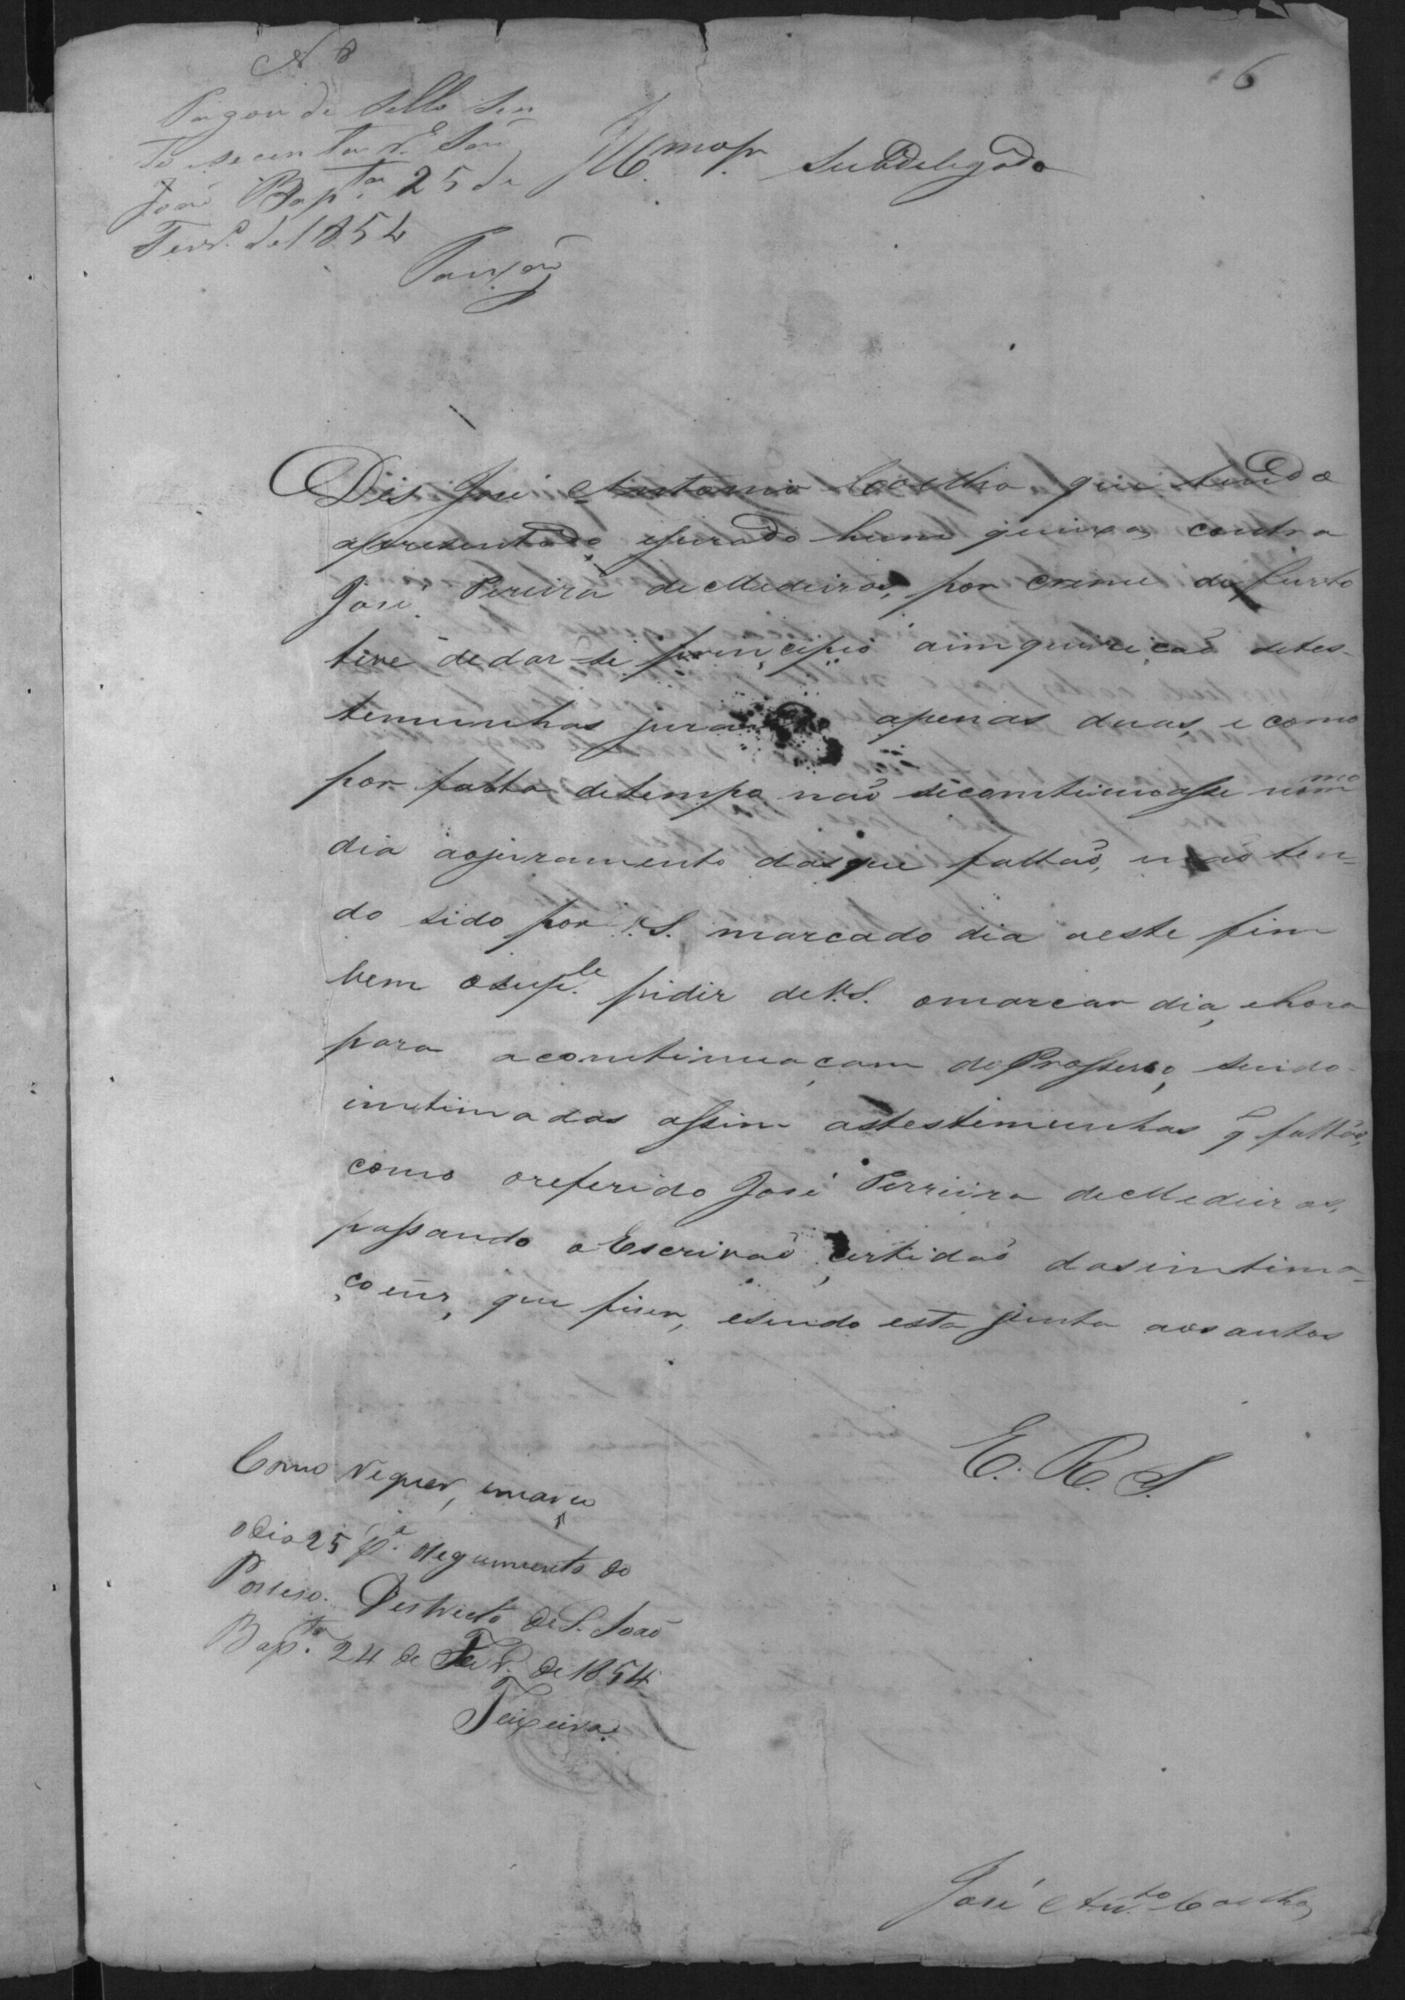 N 8
6
Pagou de sello sen
to secenta r.s São
João Bap.ta 25 de
Fevr.o de 1854
Paixão
Ill.mo Sr. Subdelegado
Dis José Antonio Coelho que tendo
apresentado ejurado huma queixa contra
José Pereira de Medeiros, por creme de furto
teve dedar-se principio ainquirição detes-
temunhas jurando apenas duas, e como
por falta detempo não secomtinuasse nomm mo
dia aojuramento dasque faltão, enão ten-
do sido por V.S. marcado dia aeste fim
vem osup.te pidir deV.S. omarcar dia, ehora
para acomtinuaçam do Prosseço, sendo
intimadas assim astestimunhas q̃ faltão,
como oreferido José Perreira deMedeiros,
passando o Escrivão certidão dasintima-
çoens, que fiser, esendo esta junta aosautos
E. R. S.
Como requer, emarco
odia 25 p.a seguimento do
Posseso. Destricto de S. João
Bap.ta 24 de Fev.o de 1854
Teixeira
José Ant.o Coelho